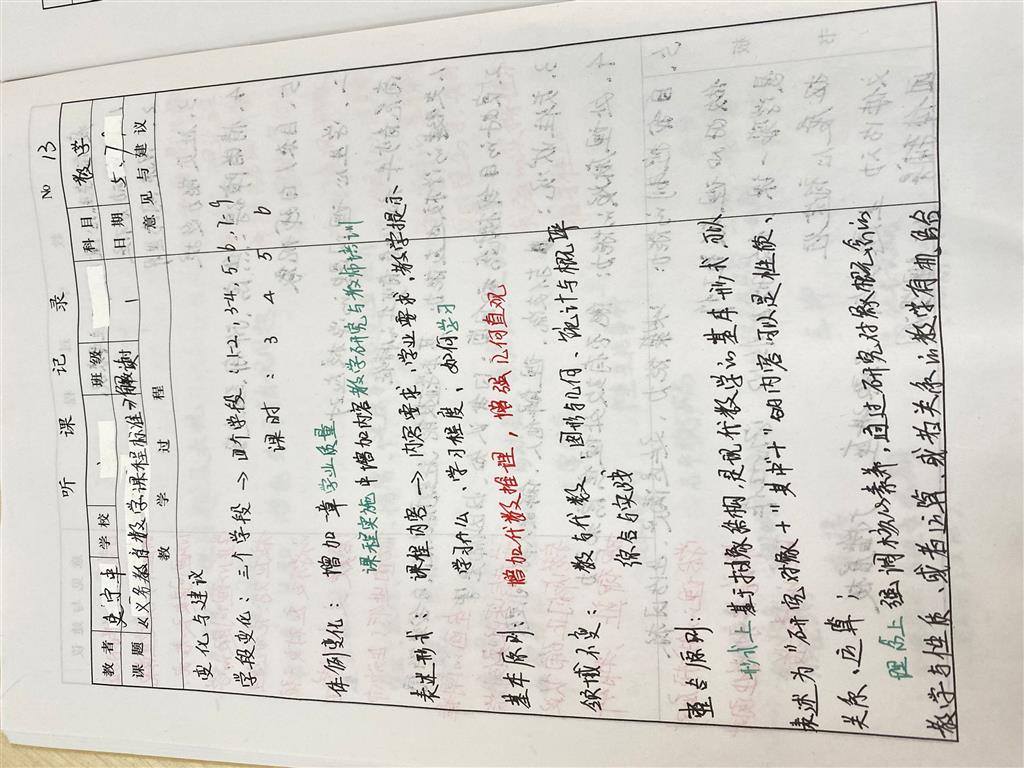 听 课 记 录 No 13
教者 史宁中 学校 班级 科目 数学
课题 《义务教育数学课程标准》解读 日期 5.19
教 学 过 程 意见与建议
变化与建议
学段变化：三个学段 → 四个学段，1-2，3-4，5-6，7-9
课时： 3 4 5 6
体例变化：增加一章 学业质量
课程实施中增加内容 教学研究与教师培训
表述形式：课程内容 → 内容要求，学业要求，教学提示
学习什么、学习程度、如何学习
基本原则：增加代数推理，增强几何直观
领域不变：数与代数、图形与几何、统计与概率
综合与实践
整合原则：
形式上 基于抽象结构，是现代数学的基本形式，可以
表述为"研究对象＋"其中＋"的内容可以是性质、
关系、运算；
理念上 强调核心素养，通过研究对象概念的
教学与性质、或者运算、或者关系的教学有机融合